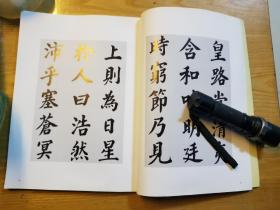 上則為日星
扵人曰浩然
沛乎塞蒼冥
皇路當清夷
含和吐明廷
時窮節乃見